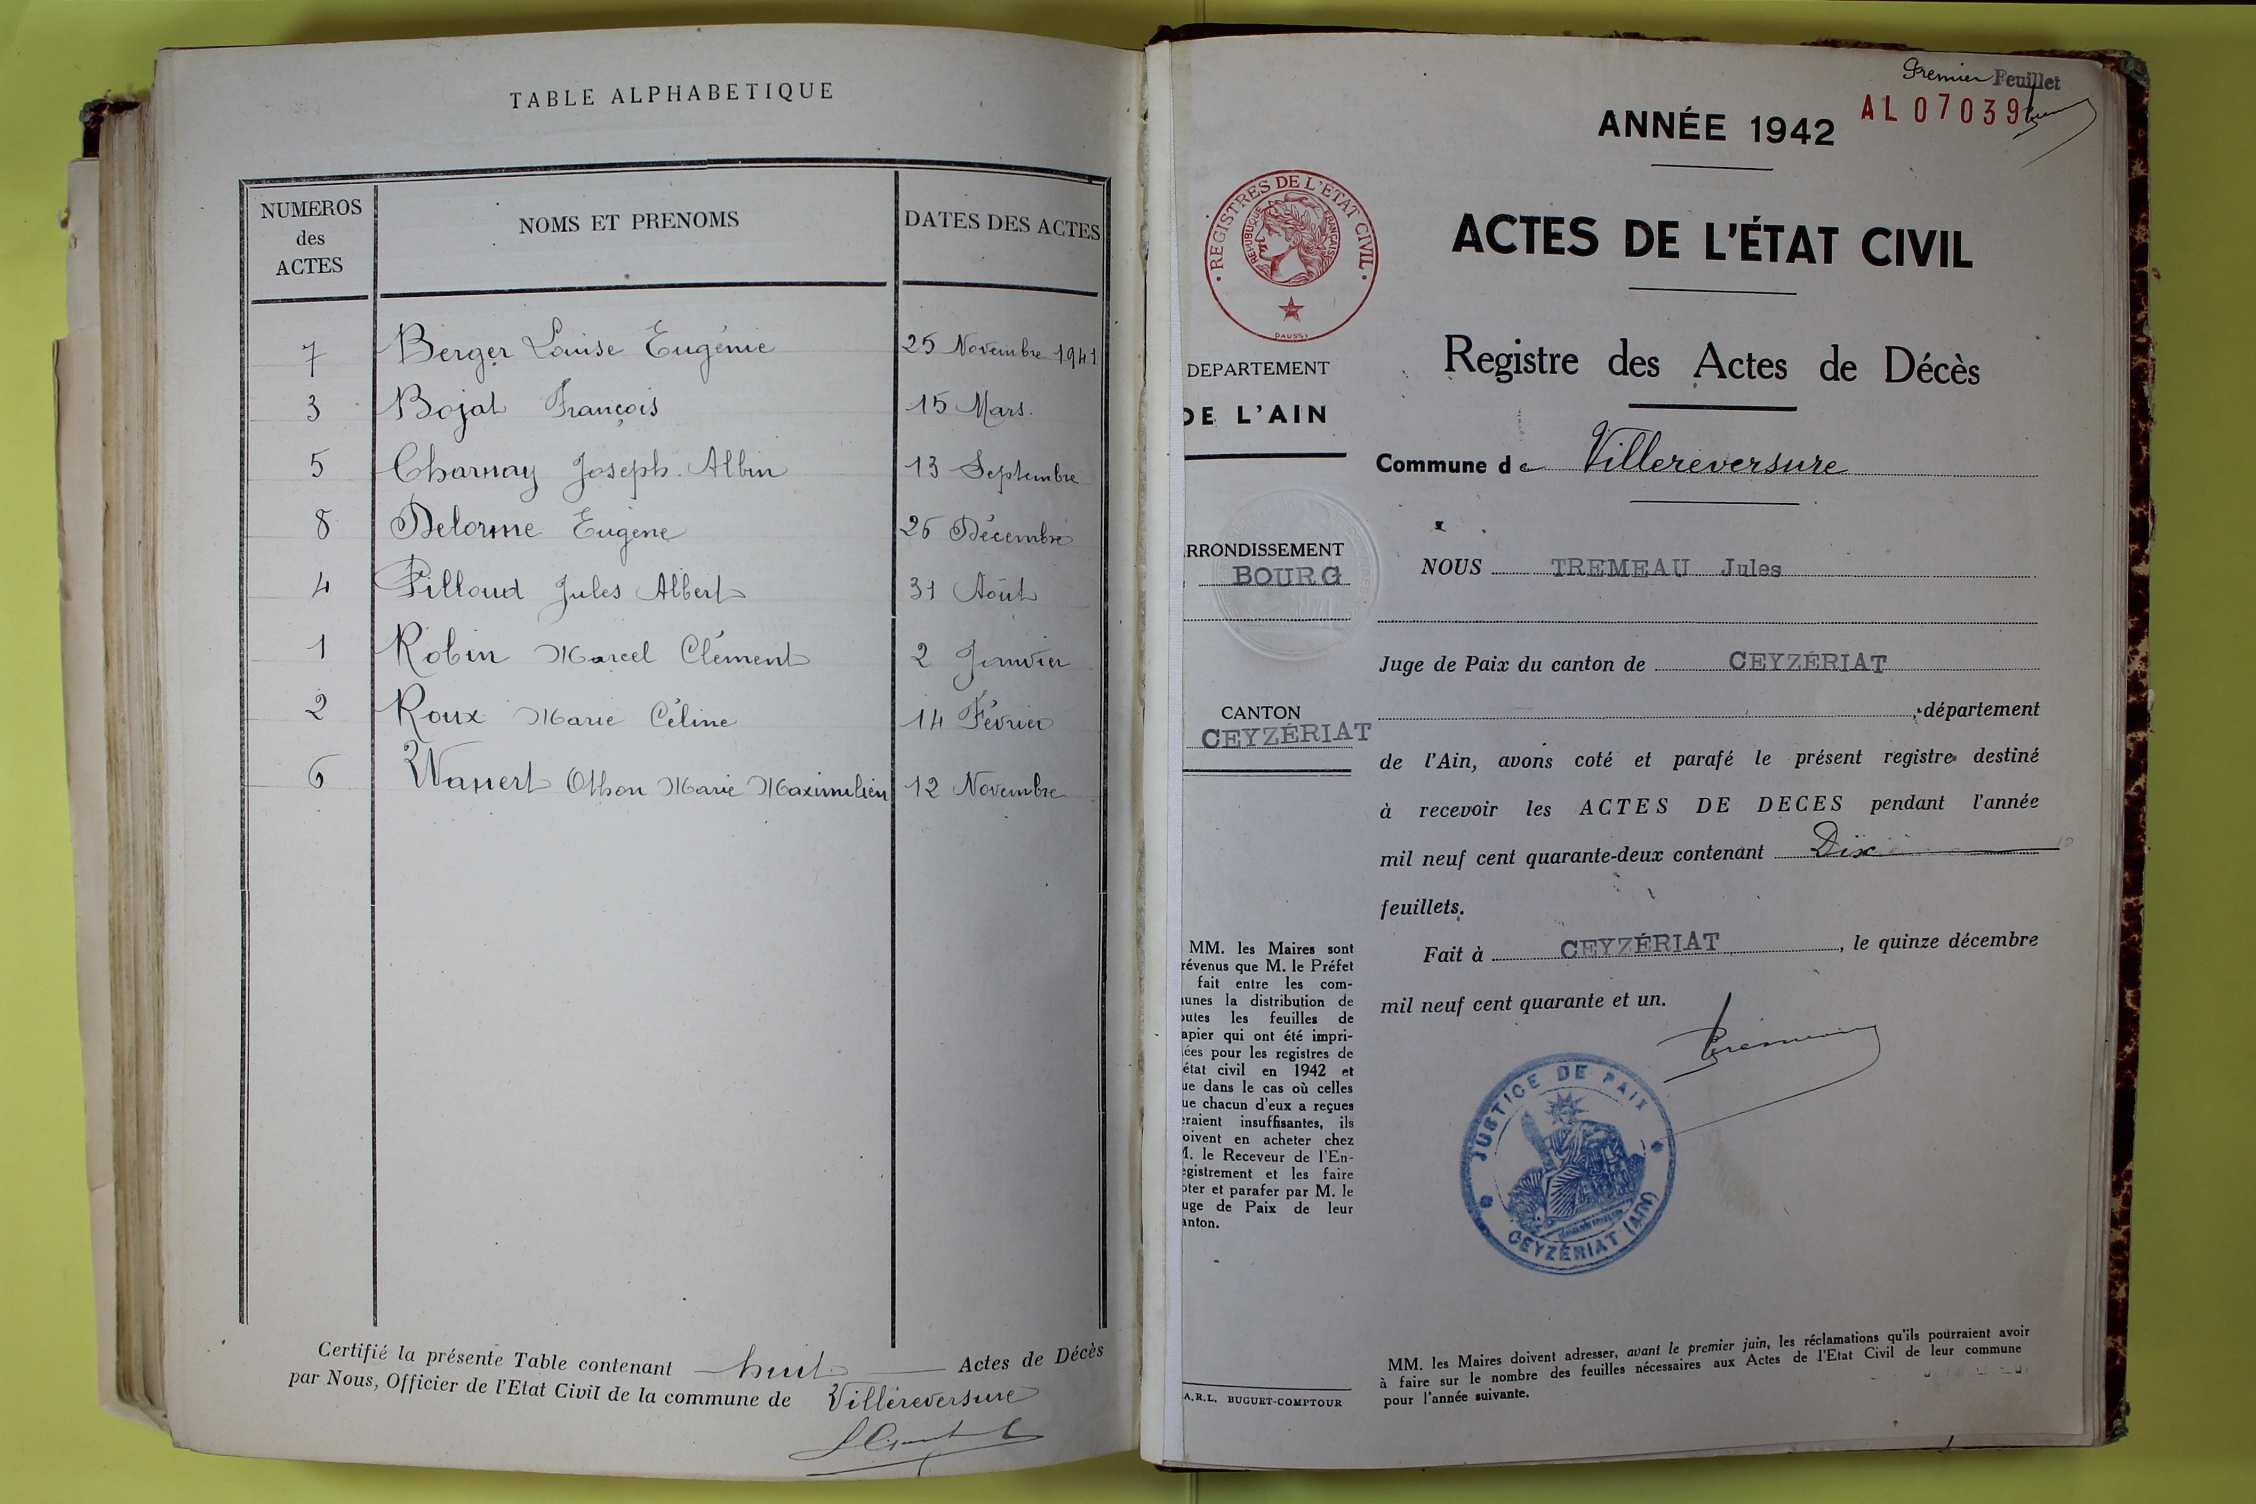 TABLE ALPHABETIQUE
NUMEROS des ACTES
NOMS ET PRENOMS
DATES DES ACTES
7 Berger Louise Eugénie 25 Novembre 1941
3 Bojat François 15 Mars.
5 Charnay Joseph Albin 13 Septembre
8 Delorme Eugène 26 Décembre
4 Pilloud Jules Albert 31 Août
1 Robin Marcel Clément 2 Janvier
2 Roux Marie Céline 14 Février
6 Othon Marie Maximilien 12 Novembre
Certifié la présente Table contenant huit Actes de Décès
par Nous, Officier de l'Etat Civil de la commune de Villereversure
Premier Feuillet
AL 07039
ANNÉE 1942
REGISTRES DE L'ETAT CIVIL
REPUBLIQUE FRANÇAISE
DAUSSY
ACTES DE L'ÉTAT CIVIL
Registre des Actes de Décès
DEPARTEMENT
DE L'AIN
RRONDISSEMENT
BOURG
CANTON
CEYZÉRIAT
MM. les Maires sont
révenus que M. le Préfet
fait entre les com-
unes la distribution de
outes les feuilles de
apier qui ont été impri-
ées pour les registres de
état civil en 1942 et
ue dans le cas où celles
ue chacun d'eux a reçues
eraient insuffisantes, ils
oivent en acheter chez
M. le Receveur de l'En-
egistrement et les faire
oter et parafer par M. le
uge de Paix de leur
anton.
A.R.L. BUGUET-COMPTOUR
Commune de Villereversure
NOUS TREMEAU Jules
Juge de Paix du canton de CEYZÉRIAT
, département
de l'Ain, avons coté et parafé le présent registre destiné
à recevoir les ACTES DE DECES pendant l'année
mil neuf cent quarante-deux contenant Dix
feuillets.
Fait à CEYZÉRIAT, le quinze décembre
mil neuf cent quarante et un.
JUSTICE DE PAIX
CEYZÉRIAT (AIN)
MM. les Maires doivent adresser, avant le premier juin, les réclamations qu'ils pourraient avoir
à faire sur le nombre des feuilles nécessaires aux Actes de l'Etat Civil de leur commune
pour l'année suivante.